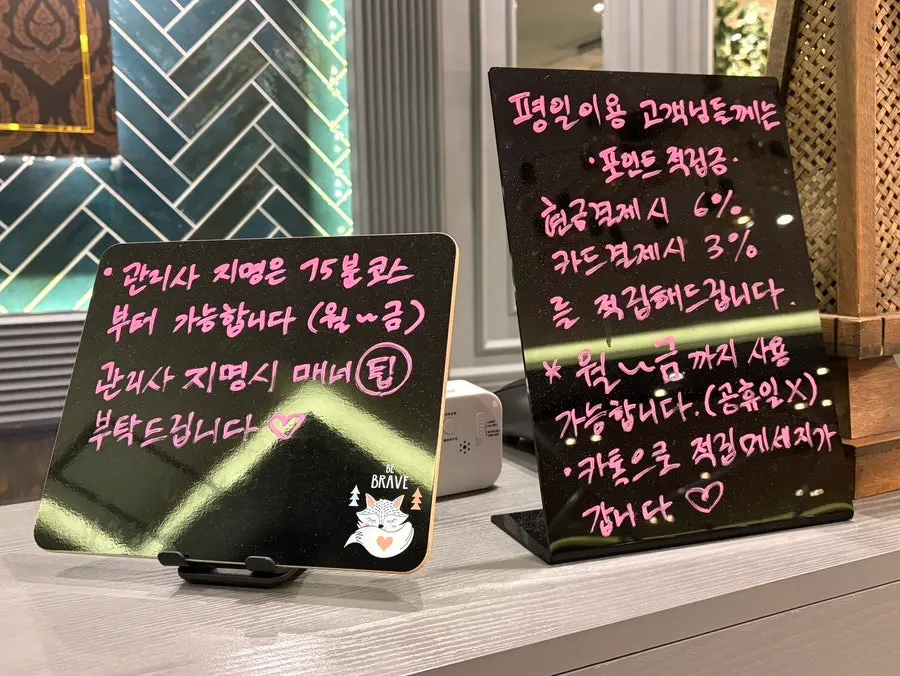 • 관리사 지명은 75분코스
부터 가능합니다 (월~금)
관리사 지명시 매너팁
부탁드립니다 ♡
BE
BRAVE
평일이용 고객님들께는
·포인트 적립금·
현금결제시 6%
카드결제시 3%
를 적립해드립니다.
* 월~금까지 사용
가능합니다. (공휴일X)
• 카톡으로 적립메세지가
갑니다 ♡